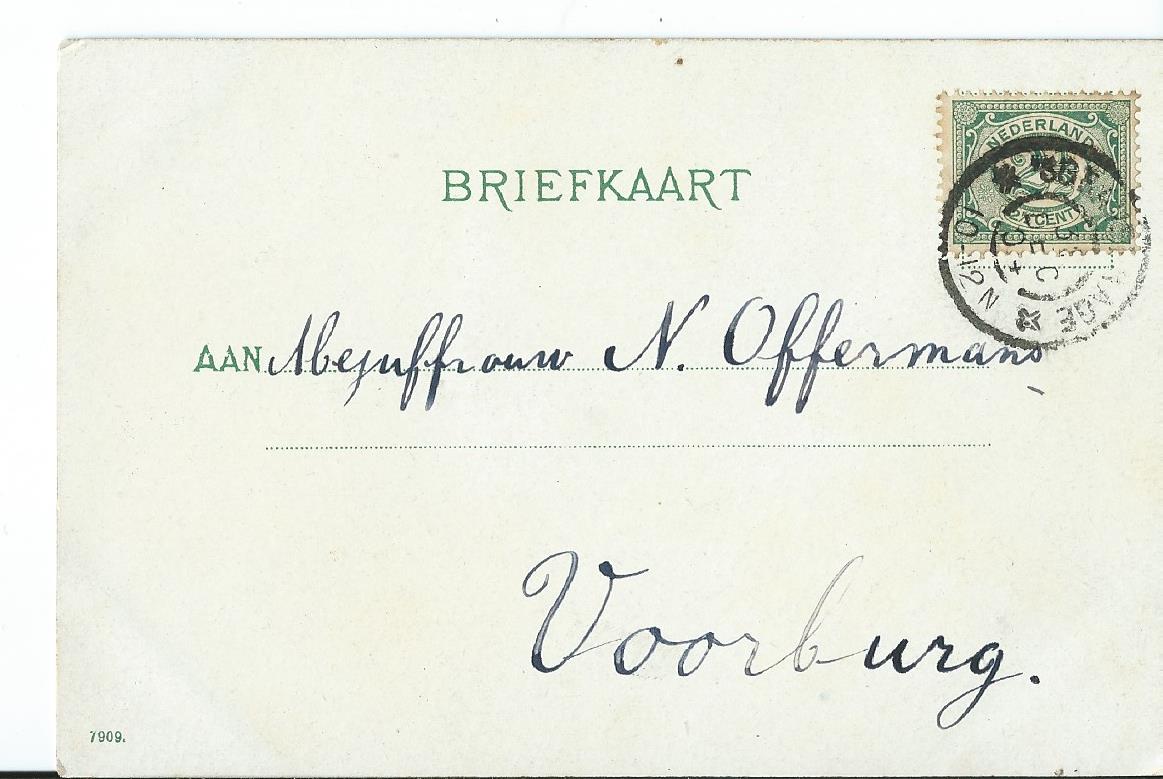 BRIEFKAART
NEDERLAND
2½ CENT
10-12 N
AAN Mejuffrouw N. Offermans
Voorburg.
7909.